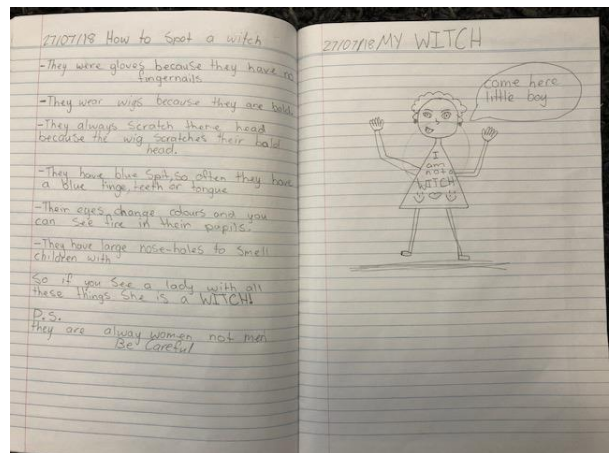 27/07/18 How to Spot a witch
-They were gloves because they have no
fingernails
-They wear wigs because they are bald.
-They always scratch there head
because the wig scratches their bald
head.
-They have blue spit, so often they have
a blue tinge, teeth or tongue
-Their eyes change colours and you
can see fire in their pupils.
-They have large nose-holes to smell
children with
So if you see a lady with all
these things She is a WITCH!
P.S.
they are alway women not men
Be Careful
27/07/18 MY WITCH
come here
little boy
I
am
not a
WITCH